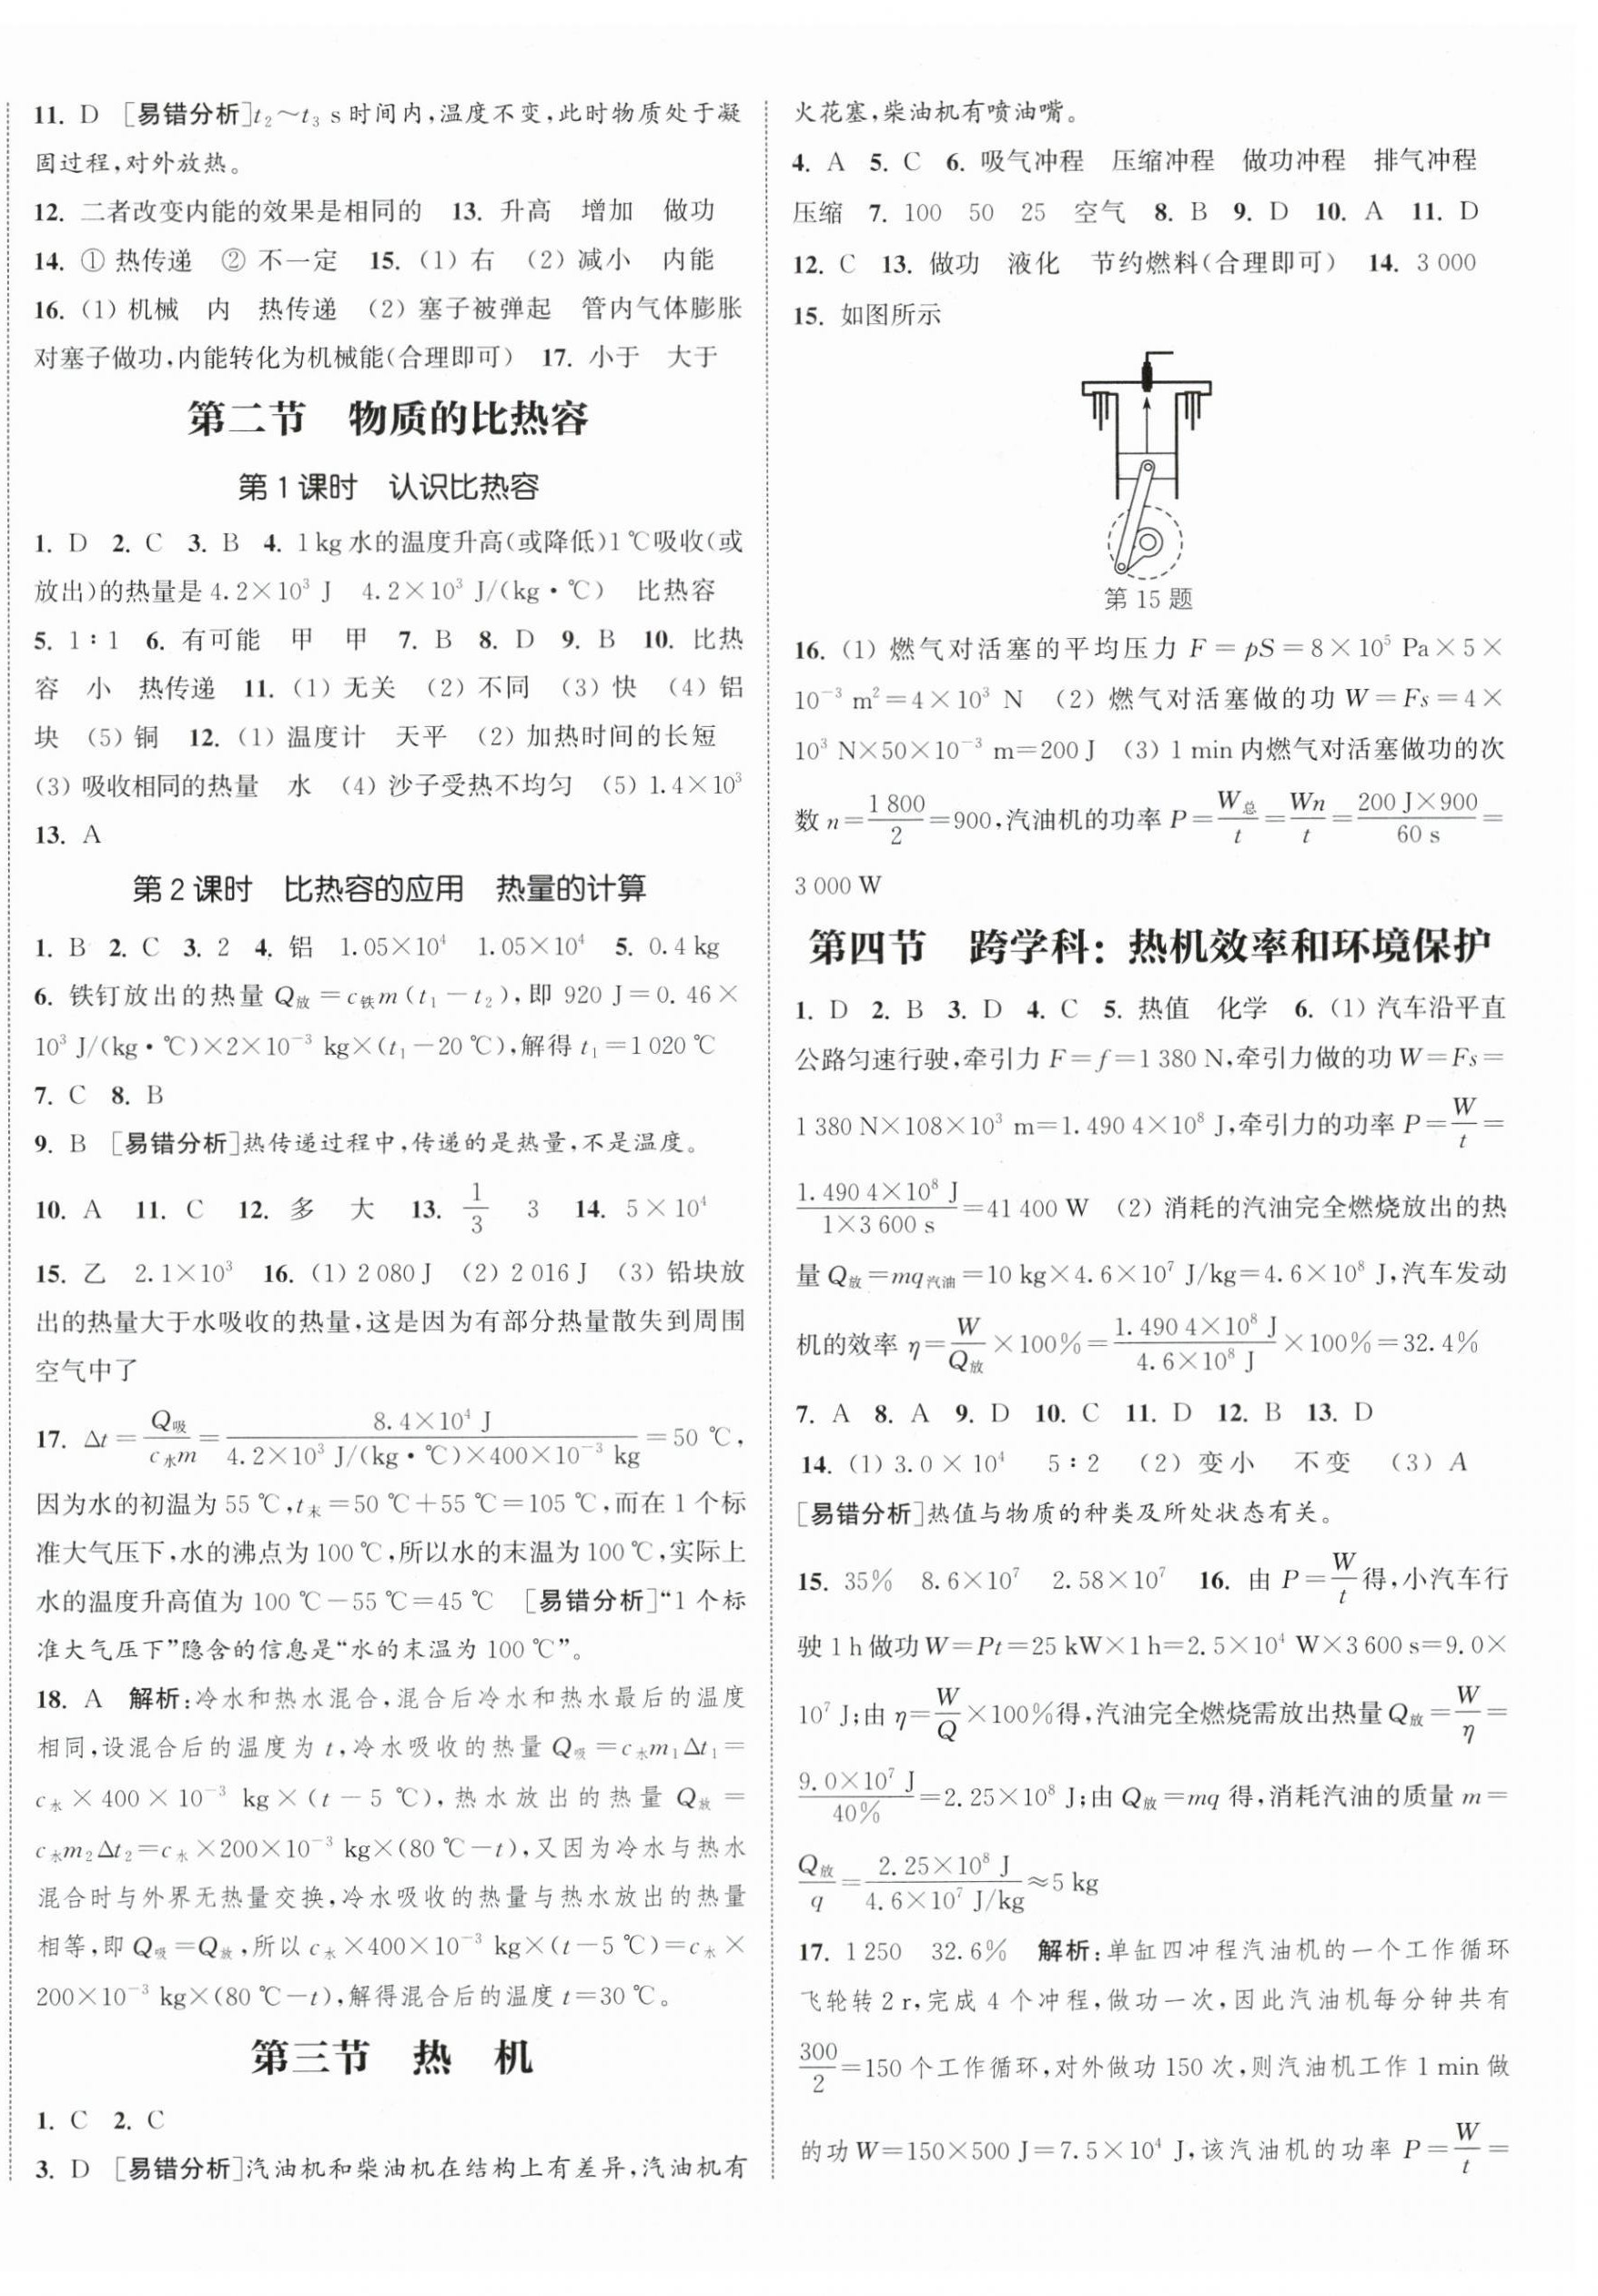 11. D [易错分析]t₂～t₃ s时间内,温度不变,此时物质处于凝
固过程,对外放热。
12. 二者改变内能的效果是相同的 13. 升高 增加 做功
14. ① 热传递 ② 不一定 15. (1) 右 (2) 减小 内能
16. (1) 机械 内 热传递 (2) 塞子被弹起 管内气体膨胀
对塞子做功,内能转化为机械能(合理即可) 17. 小于 大于
第二节 物质的比热容
第1课时 认识比热容
1. D 2. C 3. B 4. 1 kg水的温度升高(或降低)1 ℃吸收(或
放出)的热量是4.2×10³ J 4.2×10³ J/(kg·℃) 比热容
5. 1∶1 6. 有可能 甲 甲 7. B 8. D 9. B 10. 比热
容 小 热传递 11. (1) 无关 (2) 不同 (3) 快 (4) 铝
块 (5) 铜 12. (1) 温度计 天平 (2) 加热时间的长短
(3) 吸收相同的热量 水 (4) 沙子受热不均匀 (5) 1.4×10³
13. A
第2课时 比热容的应用 热量的计算
1. B 2. C 3. 2 4. 铝 1.05×10⁴ 1.05×10⁴ 5. 0.4 kg
6. 铁钉放出的热量Q放=c铁m(t₁-t₂),即 920 J=0.46×
10³ J/(kg·℃)×2×10⁻³ kg×(t₁-20 ℃),解得t₁=1 020 ℃
7. C 8. B
9. B [易错分析]热传递过程中,传递的是热量,不是温度。
10. A 11. C 12. 多 大 13. 1/3 3 14. 5×10⁴
15. 乙 2.1×10³ 16. (1) 2 080 J (2) 2 016 J (3) 铅块放
出的热量大于水吸收的热量,这是因为有部分热量散失到周围
空气中了
17. Δt=Q吸/c水m=8.4×10⁴ J/4.2×10³ J/(kg·℃)×400×10⁻³ kg=50 ℃,
因为水的初温为55 ℃,t末=50 ℃+55 ℃=105 ℃,而在1个标
准大气压下,水的沸点为100 ℃,所以水的末温为100 ℃,实际上
水的温度升高值为100 ℃-55 ℃=45 ℃ [易错分析]“1个标
准大气压下”隐含的信息是“水的末温为100 ℃”。
18. A 解析:冷水和热水混合,混合后冷水和热水最后的温度
相同,设混合后的温度为t,冷水吸收的热量Q吸=c水m₁Δt₁=
c水×400×10⁻³ kg×(t-5 ℃),热水放出的热量Q放=
c水m₂Δt₂=c水×200×10⁻³ kg×(80 ℃-t),又因为冷水与热水
混合时与外界无热量交换,冷水吸收的热量与热水放出的热量
相等,即Q吸=Q放,所以c水×400×10⁻³ kg×(t-5 ℃)=c水×
200×10⁻³ kg×(80 ℃-t),解得混合后的温度t=30 ℃。
第三节 热 机
1. C 2. C
3. D [易错分析]汽油机和柴油机在结构上有差异,汽油机有
火花塞,柴油机有喷油嘴。
4. A 5. C 6. 吸气冲程 压缩冲程 做功冲程 排气冲程
压缩 7. 100 50 25 空气 8. B 9. D 10. A 11. D
12. C 13. 做功 液化 节约燃料(合理即可) 14. 3 000
15. 如图所示
第15题
16. (1) 燃气对活塞的平均压力F=pS=8×10⁵ Pa×5×
10⁻³ m²=4×10³ N (2) 燃气对活塞做的功W=Fs=4×
10³ N×50×10⁻³ m=200 J (3) 1 min内燃气对活塞做功的次
数n=1 800/2=900,汽油机的功率P=W总/t=Wn/t=200 J×900/60 s=
3 000 W
第四节 跨学科：热机效率和环境保护
1. D 2. B 3. D 4. C 5. 热值 化学 6. (1) 汽车沿平直
公路匀速行驶,牵引力F=f=1 380 N,牵引力做的功W=Fs=
1 380 N×108×10³ m=1.490 4×10⁸ J,牵引力的功率P=W/t=
1.490 4×10⁸ J/1×3 600 s=41 400 W (2) 消耗的汽油完全燃烧放出的热
量Q放=mq汽油=10 kg×4.6×10⁷ J/kg=4.6×10⁸ J,汽车发动
机的效率η=W/Q放×100%=1.490 4×10⁸ J/4.6×10⁸ J×100%=32.4%
7. A 8. A 9. D 10. C 11. D 12. B 13. D
14. (1) 3.0×10⁴ 5∶2 (2) 变小 不变 (3) A
[易错分析]热值与物质的种类及所处状态有关。
15. 35% 8.6×10⁷ 2.58×10⁷ 16. 由P=W/t得,小汽车行
驶1 h做功W=Pt=25 kW×1 h=2.5×10⁴ W×3 600 s=9.0×
10⁷ J;由η=W/Q×100%得,汽油完全燃烧需放出热量Q放=W/η=
9.0×10⁷ J/40%=2.25×10⁸ J;由Q放=mq得,消耗汽油的质量m=
Q放/q=2.25×10⁸ J/4.6×10⁷ J/kg≈5 kg
17. 1 250 32.6% 解析:单缸四冲程汽油机的一个工作循环
飞轮转2 r,完成4个冲程,做功一次,因此汽油机每分钟共有
300/2=150个工作循环,对外做功150次,则汽油机工作1 min做
的功W=150×500 J=7.5×10⁴ J,该汽油机的功率P=W/t=